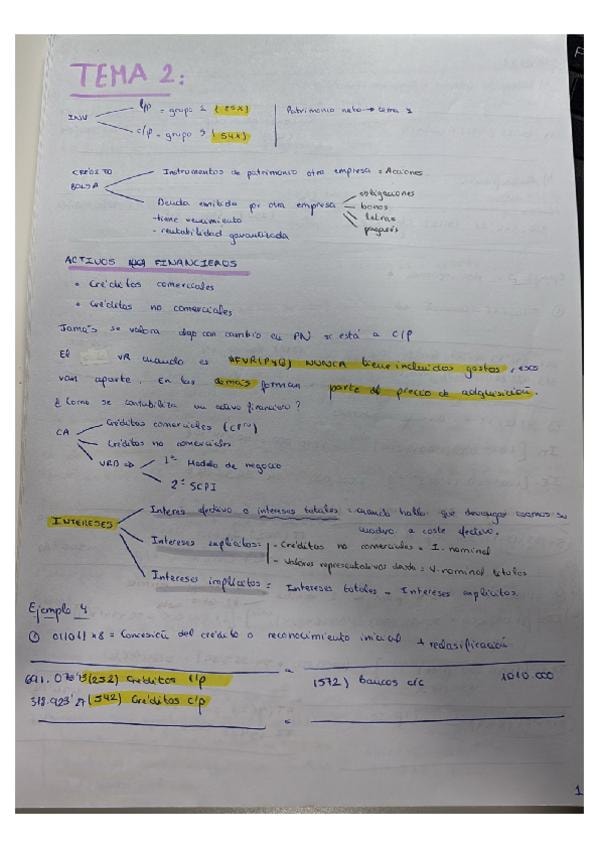 TEMA 2:
INV
l/p = grupo 2 (25X)
c/p = grupo 5 (54X)
Patrimonio neto → tema 3
CRÉDITO
BOLSA
Instrumentos de patrimonio otra empresa = Acciones
Deuda emitida por otra empresa
- tiene vencimiento
- rentabilidad garantizada
obligaciones
bonos
letras
pagarés
ACTIVOS FINANCIEROS
• Créditos comerciales
• Créditos no comerciales
Jamás se valora algo con cambio en PN si está a C/P
El VR cuando es AFVR(PyG) NUNCA tiene incluidos gastos, esos
van aparte. En las demás forman parte del precio de adquisición.
¿Como se contabiliza un activo financiero?
CA
Créditos comerciales
Créditos no comerciales
VRD ⇒
1º Modelo de negocio
2º SCPI
INTERESES
Interés efectivo o intereses totales: cuando habla que devengar usamos su
a coste efectivo.
Intereses explícitos:
- Créditos no comerciales = I. nominal
- Valores representativos deuda = V. nominal
Intereses implícitos = Intereses totales - Intereses explícitos.
Ejemplo 4
① 01/01/X8 = Concesión del crédito o reconocimiento inicial + reclasificación
(252) Créditos l/p
(572) Bancos c/c 1010.000
(542) Créditos c/p
1